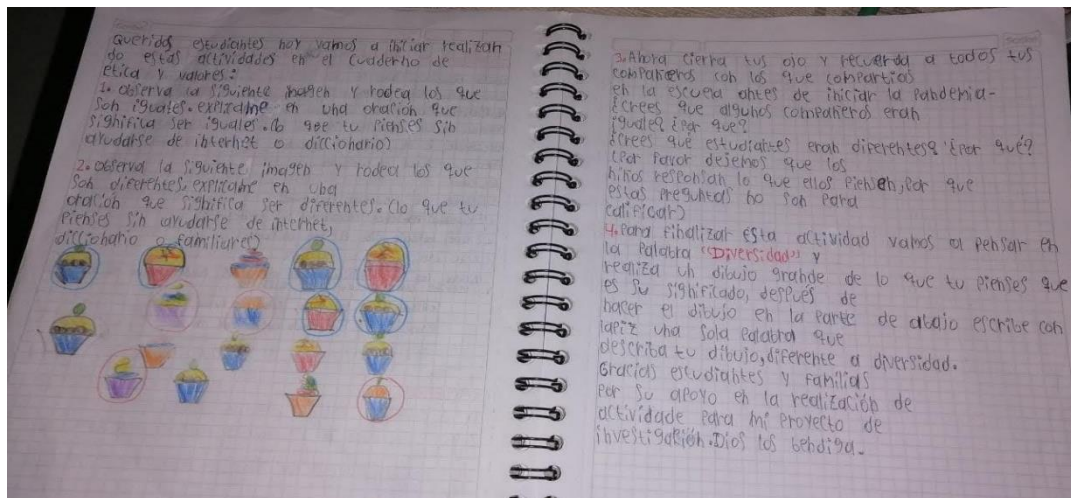 Queridos estudiantes hoy vamos a iniciar realizan
do estas actividades en el cuaderno de
etica y valores:
1. observa la siguiente imagen y rodea los que
son iguales. explicame en una oración que
significa ser iguales. (lo que tu pienses sin
ayudarse de internet o diccionario)
2. observa la siguiente imagen y rodea los que
son diferentes. explicame en una
oración que significa ser diferentes. (lo que tu
pienses sin ayudarse de internet,
diccionario o familiares)
3. Ahora cierra tus ojo y recuerda a todos tus
compañeros con los que compartias
en la escuela antes de iniciar la Pandemia-
¿crees que algunos compañeros eran
iguales? ¿por que?
¿crees que estudiantes eran diferentes? ¿por qué?
(por favor dejemos que los
niños responsan lo que ellos piensen, por que
estas preguntas no son para
calificar)
4. para finalizar esta actividad vamos a pensar en
la palabra "Diversidad" y
realiza un dibujo grande de lo que tu pienses que
es su significado, después de
hacer el dibujo en la parte de abajo escribe con
lapiz una sola palabra que
describa tu dibujo, diferente a diversidad.
Gracias estudiantes y familias
por su apoyo en la realización de
actividade para mi proyecto de
investigación. Dios los bendiga.